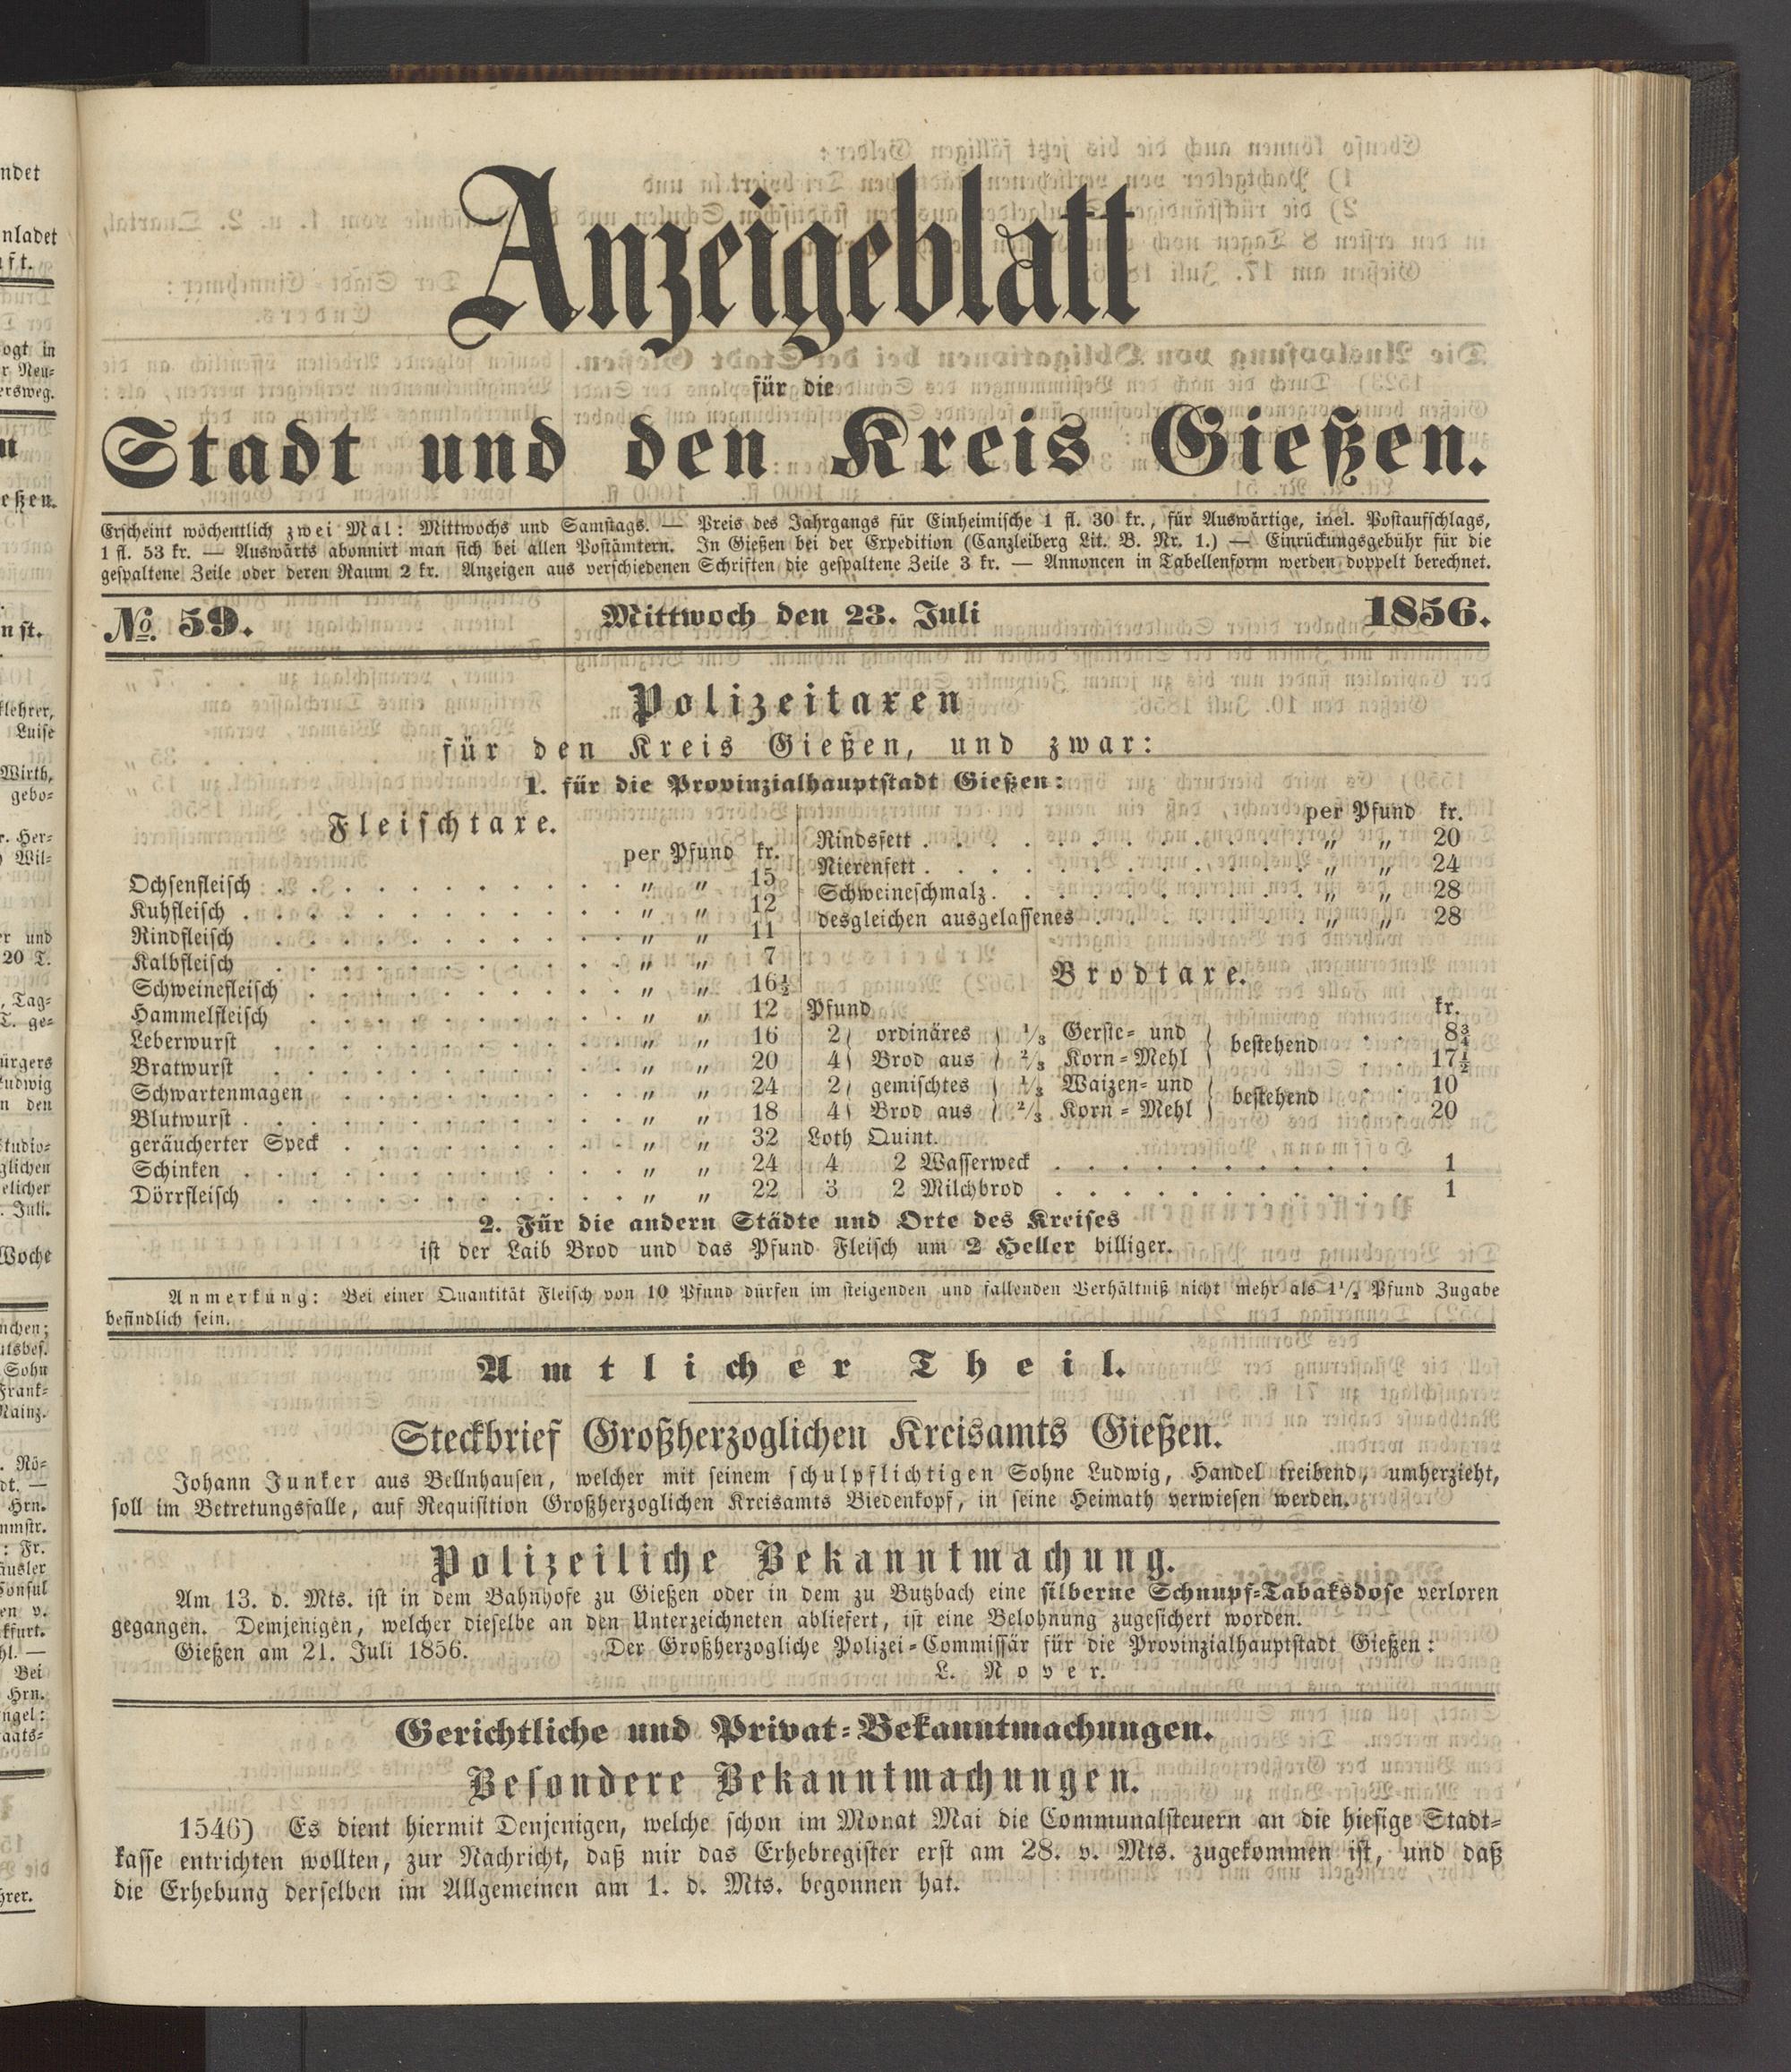 Anzeigeblatt
für die
Stadt und den Kreis Gießen.
Erscheint wöchentlich zwei Mal: Mittwochs und Samstags. — Preis des Jahrgangs für Einheimische 1 fl. 30 kr., für Auswärtige, incl. Postaufschlags,
1 fl. 53 kr. — Auswärts abonnirt man sich bei allen Postämtern. In Gießen bei der Expedition (Canzleiberg Lit. B. Nr. 1.) — Einrückungsgebühr für die
gespaltene Zeile oder deren Raum 2 kr. Anzeigen aus verschiedenen Schriften die gespaltene Zeile 3 kr. — Annoncen in Tabellenform werden doppelt berechnet.
No. 59. Mittwoch den 23. Juli 1856.
Polizeitaxen
für den Kreis Gießen, und zwar:
1. für die Provinzialhauptstadt Gießen:
Fleischtaxe.
per Pfund kr.
Ochsenfleisch . . . . . . . . . . . „ „ 15
Kuhfleisch . . . . . . . . . . . . „ „ 12
Rindfleisch . . . . . . . . . . . „ „ 11
Kalbfleisch . . . . . . . . . . . „ „ 7
Schweinefleisch . . . . . . . . . . „ „ 16½
Hammelfleisch . . . . . . . . . . „ „ 12
Leberwurst . . . . . . . . . . . „ „ 16
Bratwurst . . . . . . . . . . . „ „ 20
Schwartenmagen . . . . . . . . . „ „ 24
Blutwurst . . . . . . . . . . . . „ „ 18
geräucherter Speck . . . . . . . . . „ „ 32
Schinken . . . . . . . . . . . . „ „ 24
Dörrfleisch . . . . . . . . . . . „ „ 22
per Pfund kr.
Rindsfett . . . . . . . . . . . . „ „ 20
Nierenfett . . . . . . . . . . . . „ „ 24
Schweineschmalz . . . . . . . . . . „ „ 28
desgleichen ausgelassenes . . . . . . . „ „ 28
Brodtaxe.
Pfund kr.
2 ordinäres 1/3 Gerste- und bestehend . . 8¾
4 Brod aus 2/3 Korn-Mehl 17½
2 gemischtes 1/3 Waizen- und bestehend . . 10
4 Brod aus 2/3 Korn-Mehl 20
Loth Quint.
4 2 Wasserweck . . . . . . . . . . . 1
3 2 Milchbrod . . . . . . . . . . . 1
2. Für die andern Städte und Orte des Kreises
ist der Laib Brod und das Pfund Fleisch um 2 Heller billiger.
Anmerkung: Bei einer Quantität Fleisch von 10 Pfund dürfen im steigenden und fallenden Verhältniß nicht mehr als 1½ Pfund Zugabe
befindlich sein.
Amtlicher Theil.
Steckbrief Großherzoglichen Kreisamts Gießen.
Johann Junker aus Bellnhausen, welcher mit seinem schulpflichtigen Sohne Ludwig, Handel treibend, umherzieht,
soll im Betretungsfalle, auf Requisition Großherzoglichen Kreisamts Biedenkopf, in seine Heimath verwiesen werden.
Polizeiliche Bekanntmachung.
Am 13. d. Mts. ist in dem Bahnhofe zu Gießen oder in dem zu Butzbach eine silberne Schnupf-Tabaksdose verloren
gegangen. Demjenigen, welcher dieselbe an den Unterzeichneten abliefert, ist eine Belohnung zugesichert worden.
Gießen am 21. Juli 1856. Der Großherzogliche Polizei-Commissär für die Provinzialhauptstadt Gießen:
L. Nover.
Gerichtliche und Privat-Bekanntmachungen.
Besondere Bekanntmachungen.
1546) Es dient hiermit Denjenigen, welche schon im Monat Mai die Communalsteuern an die hiesige Stadt-
kasse entrichten wollten, zur Nachricht, daß mir das Erhebregister erst am 28. v. Mts. zugekommen ist, und daß
die Erhebung derselben im Allgemeinen am 1. d. Mts. begonnen hat.